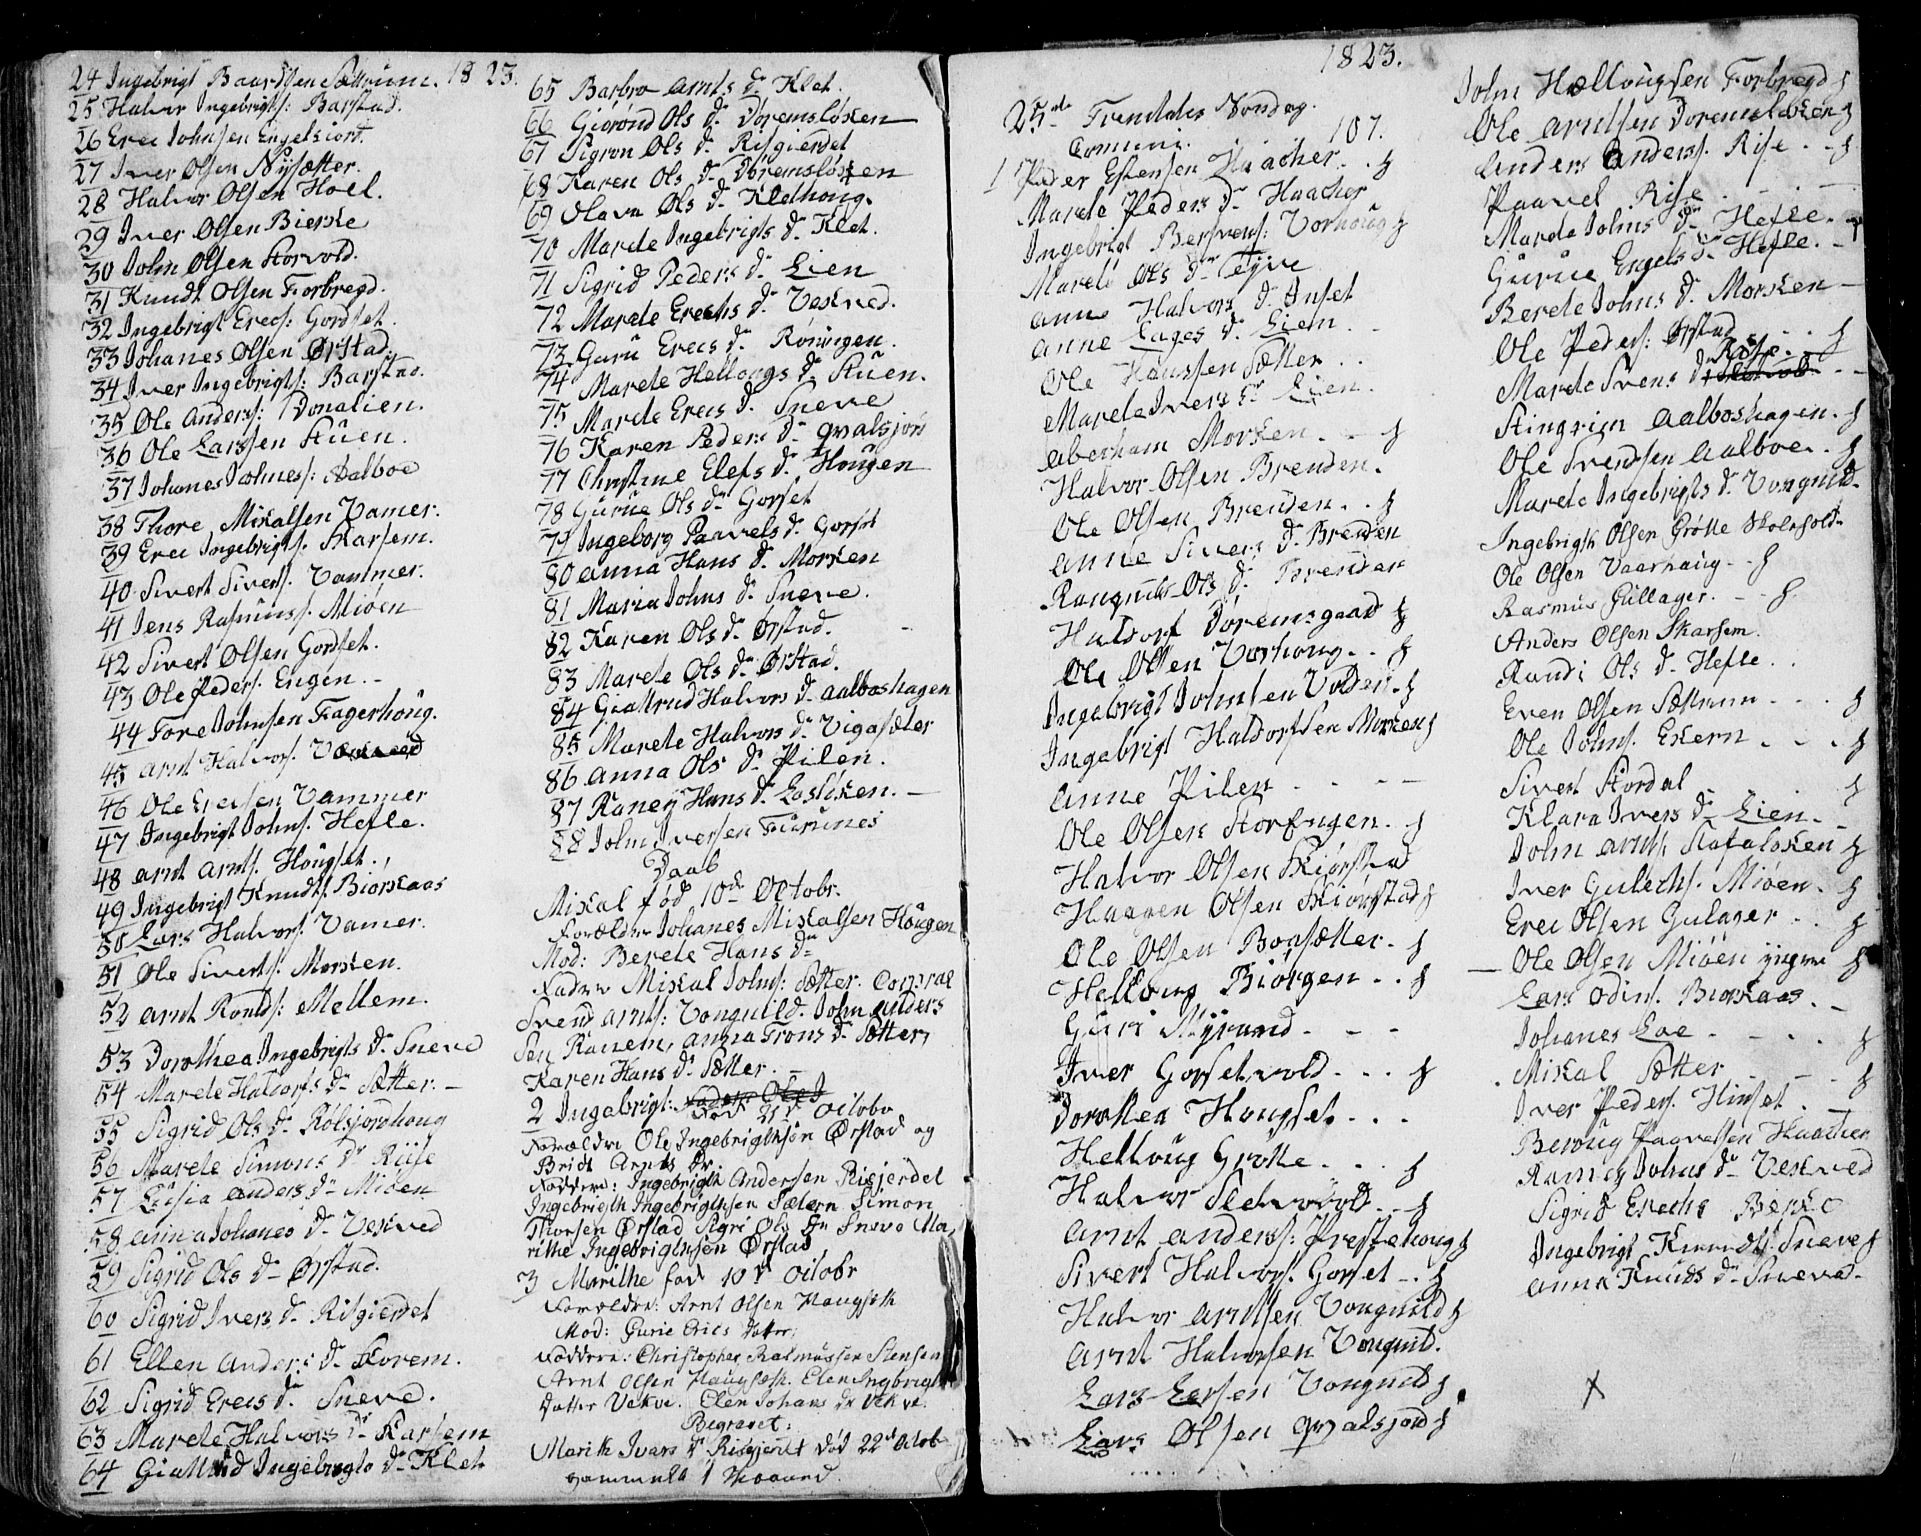 24 Ingebrigt Baardsen Sættrum. 1823.
25 Halvor Ingebrigts: Barstad.
26 Erec Johnsen Engelsiord.
27 Iver Olsen Nysætter.
28 Halvor Olsen Hoel.
29 Iver Olsen Bierke
30 John Olsen Storvold.
31 Knudt Olsen Forbregd.
32 Ingebrigt Erecs: Gordset.
33 Johanes Olsen Ørstad
34 Iver Ingebrigts: Barstad.
35 Ole Anders: Donalien.
36 Ole Larssen Stuen.
37 Johanes Johnes: Aalboe
38 Thore Mikalsen Vamer.
39 Erec Ingebrigts. Skarsem.
40 Sivert Sivers. Vammer.
41 Jens Rasmuss. Miøen
42 Sivert Olsen Gordset.
43 Ole Peders. Engen.
44 Tore Johnsen Fagerhoug.
45 Arnt Halvors.
46 Ole Erecsen Vammer
47 Ingebrigt Johns. Hefle.
48 Arnt Arnts. Hougset.
49 Ingebrigt Knudts. Biørkaas
50 Lars Halvors. Vamer.
51 Ole Siverts: Morken.
52 Arnt Roalds: Mellem.
53 Dorothea Ingebrigts dr Sneve
54 Marete Haldors dr Sætter.
55 Sigrid Ols dr Rølsjordhoug
56 Marete Simons dr Riise
57 Lusia Anders dr Miøen
58 Anna Johanes dr Vekved
59 Sigrid Ols dr Ørstad.
60 Sigrid Ivers dr Risgierdet
61 Ellen Anders dr Skorem.
62 Sigrid Erecs dr Sneve.
63 Marete Halvors dr Karsem
64 Giøttrud Ingebrigts dr Klet
65 Barbro Arnts dr Klet.
66 Giørønd Ols dr Doremsløkken
67 Sigron Ols dr Risgierdet
68 Karen Ols dr Doremsløkken
69 Olava Ols dr Klethoug.
70 Marete Ingebrigts dr Klet.
71 Sigrid Peders dr Lien
72 Marete Erechs dr Vekved.
73 Guru Erecs dr Røningen.
74 Marete Hellougs dr Stuen.
75 Marete Erecs dr Sneve
76 Karen Peders dr Qvalsjord
77 Christine Elefs dr Hougen
78 Gurue Ols dr Gorset
79 Ingeborg Paavels dr Gorset
80 Anna Hans dr Morken
81 Maria Johns dr Sneve.
82 Karen Ols dr Ørstad.
83 Marete Ols dr Ørstad.
84 Giøttrud Halvors dr Aalboshagen
85 Marete Halvors dr Vigasæter
86 Anna Ols dr Pilen.
87 Raney Hans dr Løsliken.
88 John Iversen Furunes
Daab
Mikal fød 10de Octobr.
Forældre Johanes Mikalsen Hougen
Mod: Berete Hans dr
Fadere Mikal Johns: Sætter. Corpral
Svend Arnts: Vongnild. John Anders
Sen Ranem, Anna Trons dr Sætter,
Karen Hans dr Sætter.
2 Ingebrigt: Fadere Ole I
Fød 21de Octobr
Forældre Ole Ingebrigtsøn Ørstad og
Brit Arnts Dr
Faddere: Ingebrigt Andersen Risjerdet
Ingebrigth Ingebrigthsen Sætern Simon
Thorsen Ørstad Sigri Ols Dr Sneve Ma,
rithe Ingebrigtsen Ørstad,
3 Marithe fød 10d Octobr
Forældre: Arnt Olsen Haugseth
Mod: Gurie Erics Datter,
Faddere: Christopher Rasmussen Stensen
Arnt Olsen Haugseth. Elen Ingbrigts
Datter Vekve. Elen Johans Dr Vekve.
Begravet:
Marith Ivars Dr Risgjerdt død 22de Octob
gammel 1 Maaned.
1823.
25de Trenitatis Søndag.
Comuni. 107.
1 Peder Estensen Haacher
Marete Peders dr Haacher
Ingebrigt Bersvens: Vorhoug
Marete Ols dr Tyve
Anne Halvors dr Inset
Anne Lages dr Liem
Ole Hanssen Sætter
Marete Ivers dr Lien.
Aberham Morken
Halvor Olsen Brenden.
Ole Olsen Brenden
Anne Sivers dr Brenden
Rangnild Ols dr Brenden
Haldorf Doremsgaard
Ole Olsen Vorhoug
Ingebrigt Johnsen Volden
Ingebrigt Haldorfsen Morken
Anne Pilen
Ole Olsen Storengen.
Halvor Olsen Skiørstad
Haagen Olsen Skiørstad
Ole Olsen Boesætter.
Helloug Biørgen
Guri Myrund
Iver Gorsetvold
Dorothea Hougset
Helloug Grøtte
Halvor Sletvold
Arnt Anders: Prestehoug
Sivert Halvors: Gorset
Halvor Arntsen Vongnild
Arnt Halvorsen Vongnild.
Lars Larsen Vongnild
Lars Olsen Qvalsjord
John Hellougsen Forbregd
Ole Arntsen Doremsløkken
Anders Anders. Rise
Paavel Rise
Marete Johns dr Hefle.
Gurue Engels dr Hefle.
Berete Johns dr Morken
Ole Peders: Ørstad
Marete Svens dr Rise
Stingrim Aalboshagen.
Ole Svendsen Aalboe.
Marete Ingebrigts dr Vongnild.
Ingebrigth Olsen Grøtte Skolehold.
Ole Olsen Vaarhaug
Rasmus Gullager.
Anders Olsen Skarsem.
Randi Ols dr Hefle
Even Olsen Sættrum
Ole Johns. Ekern
Sivert Stordal
Klara Ivers dr Lien.
John Arnts. Stafaløkken
Iver Gulechs. Miøen.
Erec Olsen Gulager
Ole Olsen Miøen yngre
Lars Odins. Biørkaas
Johanes Loe
Mikal Sætter
Iver Peders. Hinset
Beroug Paavelsen Haacher
Raney Johns dr Vekved
Sigrid Erechs Berke
Ingebrigt Knudts. Sneve
Anna Knuds dr Sneve.
X